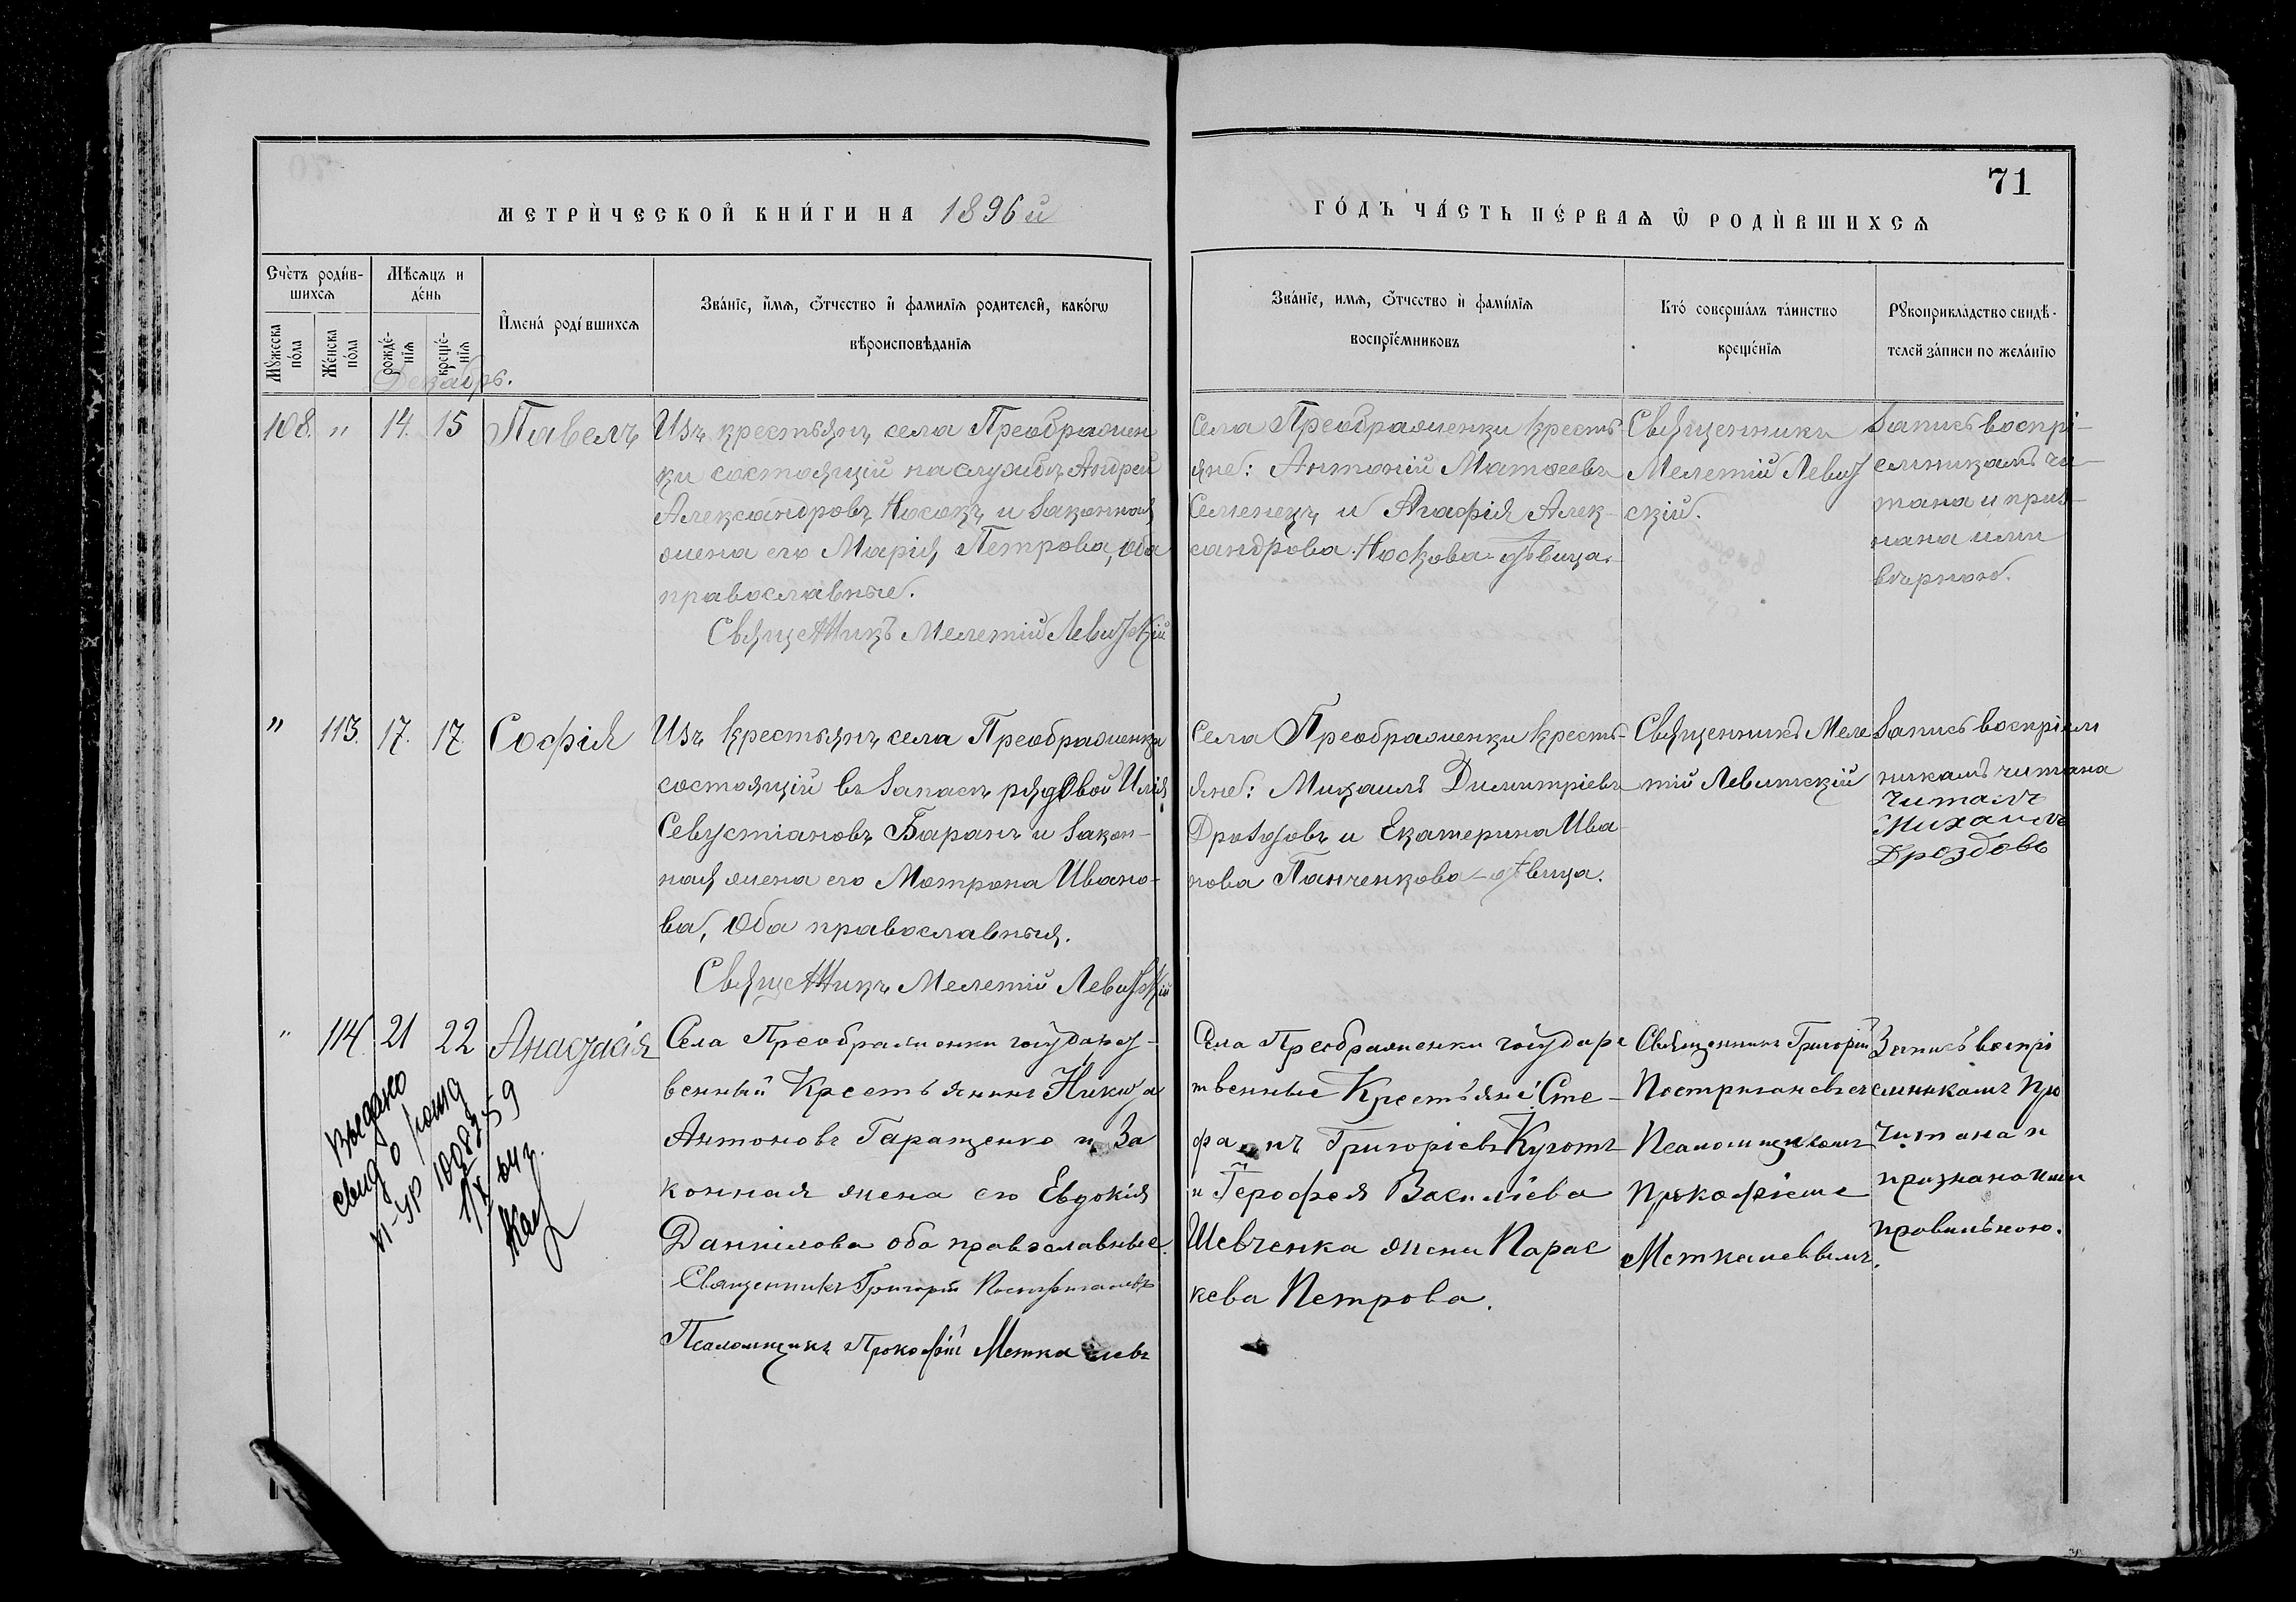 71
МЕТРИ́ЧЕСКОЙ КНИ́ГИ НА 1896 й
ГО́ДЪ ЧА́СТЬ ПЕ́РВАѦ Ѡ РОДИ́ВШИХСѦ
Сче́тъ роди́в-
шихсѧ
Мѣ́сѧцъ и
де́нь
Имена́ роди́вшихсѧ
Зва́нїе, и́мѧ, ѻ́тчество и҆ фами́лїѧ родителей, како́гѡ
вѣроисповѣ́данїѧ
Мꙋ́жеска
по́ла
Же́нска
по́ла
рожде́-
нїѧ
креще́-
нїѧ
Зва́нїе, имѧ, ѻ́тчество и҆ фами́лїѧ
воспрїе́мниковъ
Кто́ соверша́лъ та́инство
креще́нїѧ
Рꙋкоприкла́дство свидѣ́-
телей за́писи по жела́нїю
Декабрь.
108. " 14. 15 Павелъ
Изъ крестьянъ села Преображен
ки состоящій на службѣ Андрей
Александровъ Носокъ и законная
жена его Марія Петрова, оба
православные.
Священникъ Мелетій Левитскій
Села Преображенки кресть-
яне: Антоній Матѳеевъ
Семенецъ и Агафія Алек-
сандрова Носкова-дѣвица.
Священникъ
Мелетій Левит
скій.
Запись воспрі-
емникамъ чи-
тана и приз-
нана ими
вѣрною.
" 113. 17. 17. Софія
Изъ крестьянъ села Преображенки
состоящій въ запасѣ рядовой Илія
Севустіановъ Баранъ и закон-
ная жена его Мотрона Ивано-
ва, оба православныя.
Священникъ Мелетій Левитскій
Села Преображенки кресть-
яне: Михаилъ Димитріевъ
Дроздовъ и Екатерина Ива-
нова Панченкова-дѣвица.
Священникъ Меле
тій Левитскій
Запись воспріем
никамъ читана
Читалъ
Михаилъ
Дроздовъ
" 114. 21 22 Анастасія
Села Преображенки государст-
венный Крестьянинъ Никита
Антоновъ Гаращенко и за
конная жена его Евдокія
Даниілова оба православные.
Священникъ Григорій Постригановъ
Псаломщикъ Прокофій Меткалевъ
Села Преображенки государс
твенные Крестьяне: Сте-
фа нъ Григоріевъ Куготъ
и Терофея Василіева
Шевченка жена Парас
кева Петрова.
Священникъ Григорій
Постригановъ съ
Псаломщикомъ
Прокофіемъ
Меткалевымъ.
Запись воспрі
емникамъ про
читана и
признана ими
правильною.
Выдано
свид о рожд
1008359